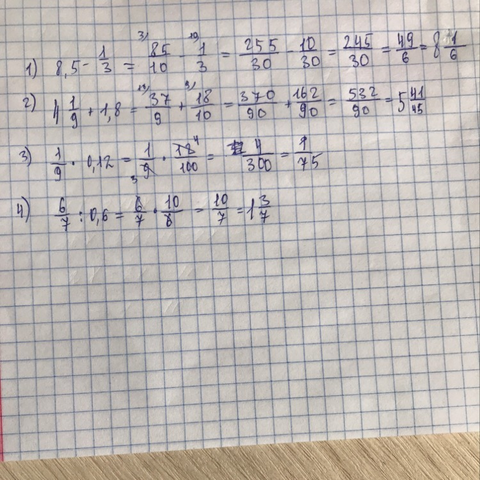 1) 8,5 - 1/3 = 85/10 - 1/3 = 255/30 - 10/30 = 245/30 = 49/6 = 8 1/6
2) 4 1/9 + 1,8 = 37/9 + 18/10 = 370/90 + 162/90 = 532/90 = 5 41/45
3) 1/9 · 0,12 = 1/9 · 12/100 = 4/300 = 1/75
4) 6/7 : 0,6 = 6/7 · 10/6 = 10/7 = 1 3/7